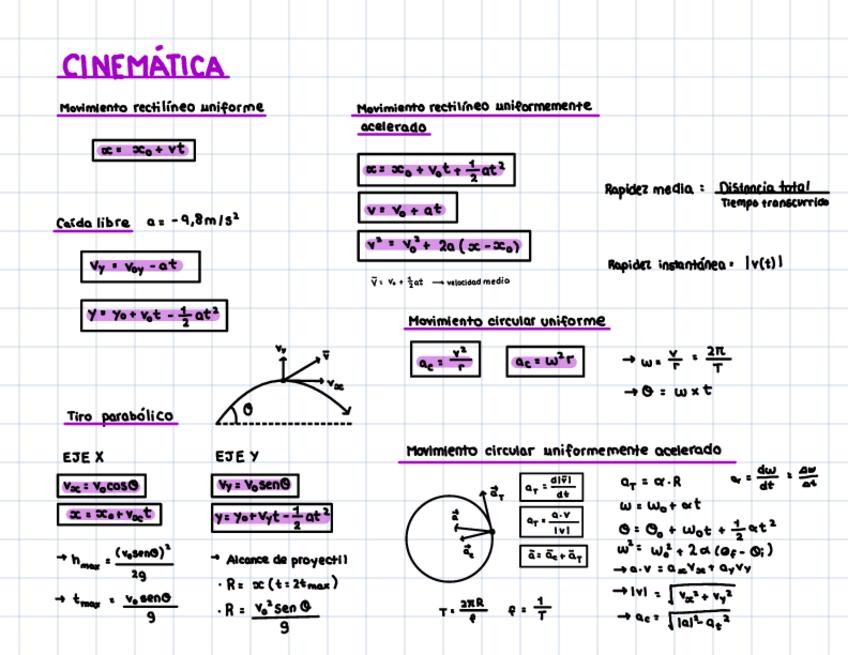 CINEMÁTICA
Movimiento rectilíneo uniforme
x = x₀ + vt
Caída libre a = -9,8m/s²
Vy = Voy - at
y = yo + v₀t - 1/2 at²
Movimiento rectilíneo uniformemente
acelerado
x = x₀ + v₀t + 1/2 at²
v = v₀ + at
v² = v₀² + 2a (x - x₀)
v̄ = v₀ + 1/2 at → velocidad medio
Rapidez media = Distancia total / Tiempo transcurrido
Rapidez instantánea = |v(t)|
Movimiento circular uniforme
ac = v²/r
ac = ω²r
→ ω = v/r = 2π/T
→ θ = ω x t
Tiro parabólico
Vy
v̄
Vx
θ
EJE X
Vx = V₀cosθ
x = x₀ + Vxt
→ hmax = (v₀senθ)² / 2g
→ tmax = v₀senθ / g
EJE Y
Vy = V₀senθ
y = y₀ + Vyt - 1/2 at²
→ Alcance de proyectil
· R = x (t = 2tmax)
· R = v₀² sen θ / g
Movimiento circular uniformemente acelerado
a⃗T
a⃗
a⃗c
aT = d|v̄| / dt
aT = a·v / |v|
ā = āc + āT
aT = α · R
α = dω/dt = Δω/Δt
ω = ω₀ + αt
θ = θ₀ + ω₀t + 1/2 αt²
ω² = ω₀² + 2α (θf - θi)
→ a·v = axvx + ayvy
→ |v| = √(vx² + vy²)
→ ac = √(|a|² - aT²)
T = 2πR / ρ
ρ = 1/T